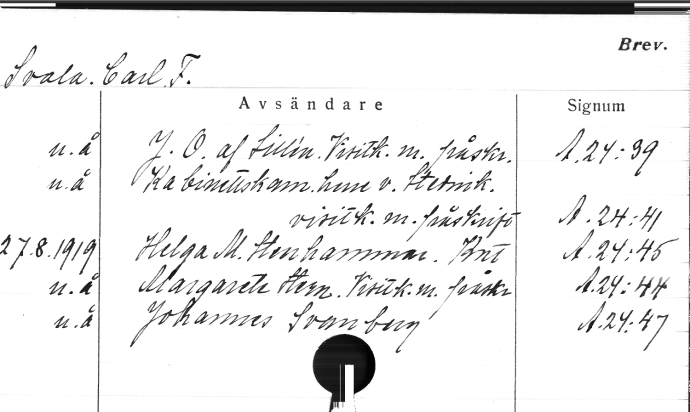 Brev.
Svala. Carl F.
Avsändare Signum
u.å J. O. af Sillén. Visitk. m. påskr. A.24:39
u.å Kabinettskam. herre v. Stednik.
visitk. m. påskrift A.24:41
27.8.1919 Helga M. Stenhammar. Knt A.24:45
u.å Margarete Stern. Visitk. m. påskr A.24:44
u.å Johannes Svanberg A.24:47